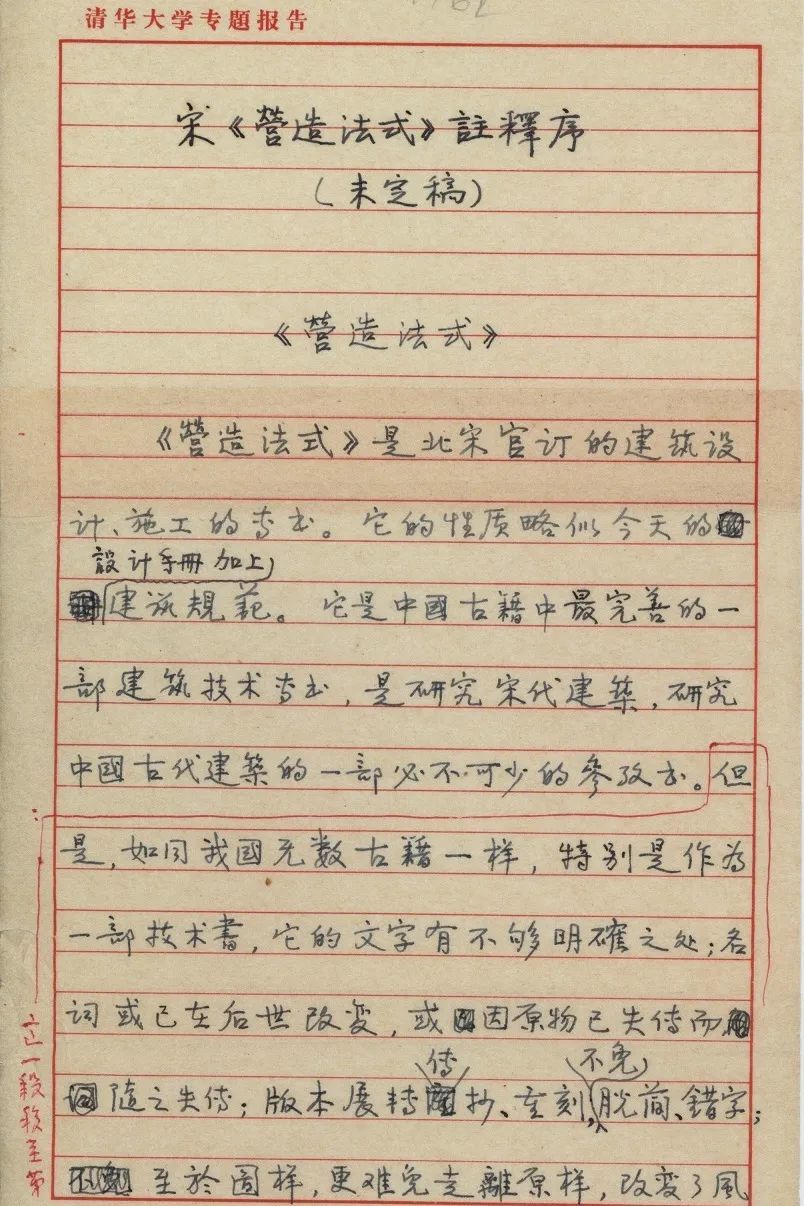 清华大学专题报告
宋《營造法式》註釋序
(未定稿)
《營造法式》
《營造法式》是北宋官订的建筑设
计、施工的专书。它的性质略似今天的
設计手冊加上
建筑規范。它是中國古籍中最完善的一
部建筑技术专书,是研究宋代建築,研究
中國古代建築的一部必不可少的參攷书。但
是,如同我國无数古籍一样,特别是作為
一部技术書,它的文字有不够明確之处;名
词或已在后世改变,或因原物已失传而
传 不免
隨之失传;版本展转抄、重刻,脱简、錯字;
至於圖样,更难免走離原样,改变了風
这一段移至第